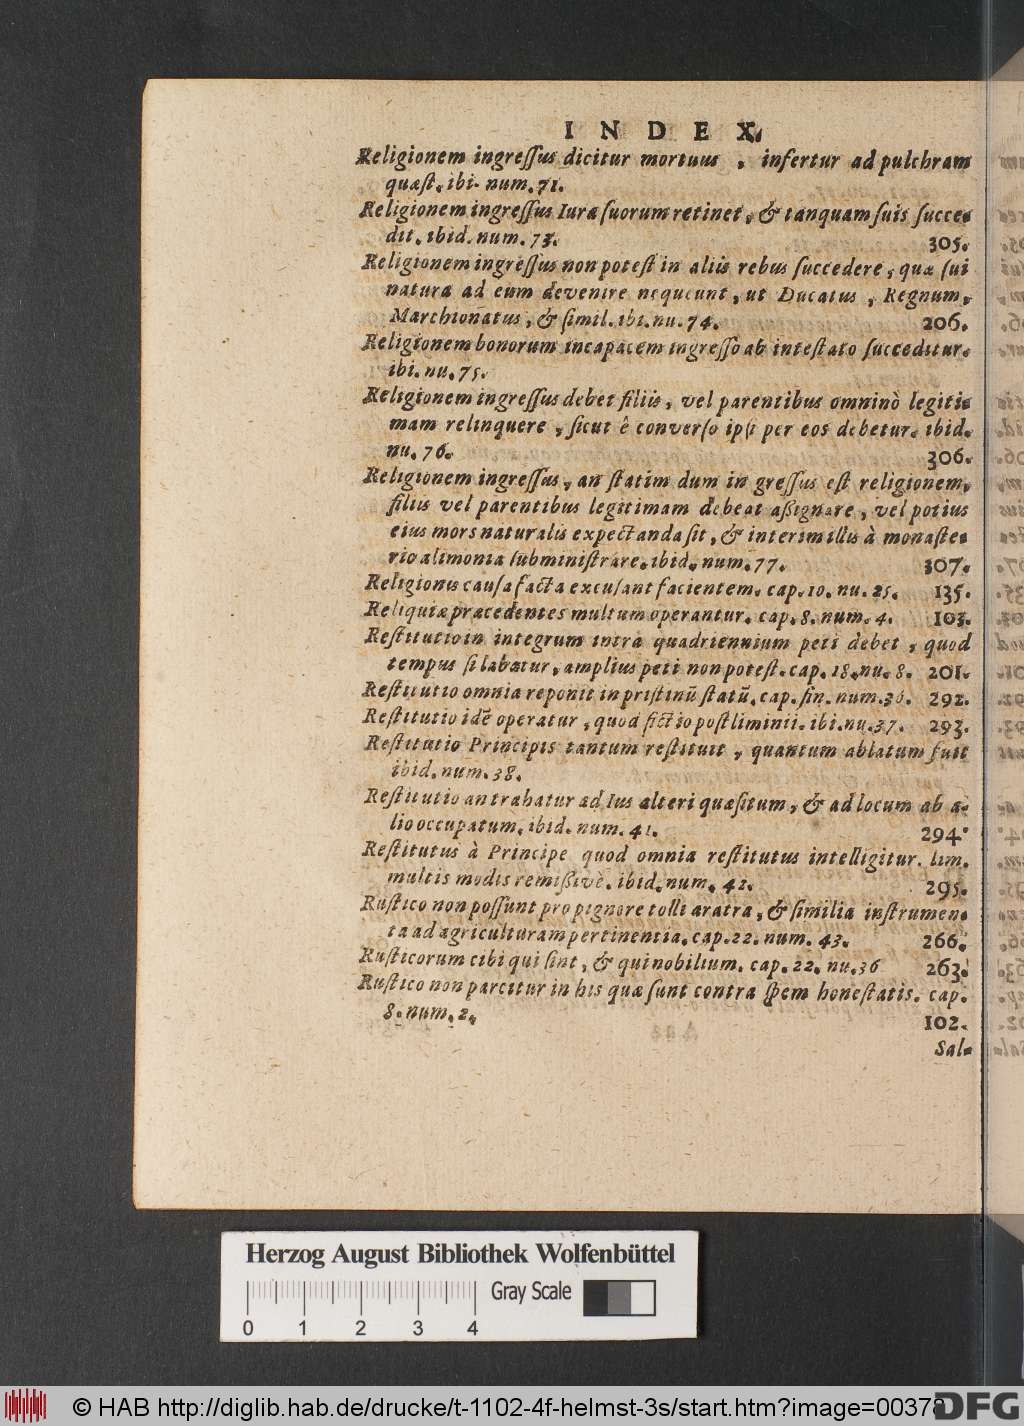 INDEX.
Religionem ingreſſus dicitur mortuus, infertur ad pulchram
quæſt. ibi. num. 71.
Religionem ingreſſus Iura ſuorum retinet, & tanquam ſuis ſucce-
dit. ibid. num. 73. 305.
Religionem ingreſſus non poteſt in aliis rebus ſuccedere, quæ ſui
natura ad eum devenire nequeunt, ut Ducatus, Regnum,
Marchionatus, & ſimil. ibi. nu. 74. 206.
Religionem bonorum incapacem ingreſſo ab inteſtato ſucceditur.
ibi. nu. 75.
Religionem ingreſſus debet filiis, vel parentibus omninò legiti-
mam relinquere, ſicut ê converſo ipſi per eos debetur. ibid.
nu. 76. 306.
Religionem ingreſſus, an ſtatim dum in greſſus eſt religionem,
filiis vel parentibus legitimam debeat aßignare, vel potius
eius mors naturalis expectanda ſit, & interim illis à monaſte-
rio alimonia ſubminiſtrare. ibid. num. 77. 307.
Religionis cauſa facta excuſant facientem. cap. 10. nu. 25. 135.
Reliquiæ præcedentes multum operantur. cap. 8. num. 4. 103.
Reſtitutio in integrum intra quadriennium peti debet, quod
tempus ſi labatur, amplius peti non poteſt. cap. 18. nu. 8. 201.
Reſtitutio omnia reponit in priſtinũ ſtatũ. cap. fin. num. 36. 292.
Reſtitutio idẽ operatur, quod fictio poſtliminii. ibi. nu. 37. 293.
Reſtitutio Principis tantum reſtituit, quantum ablatum fuit
ibid. num. 38.
Reſtitutio an trahatur ad Ius alteri quæſitum, & ad locum ab a-
lio occupatum. ibid. num. 41. 294.
Reſtitutus à Principe quod omnia reſtitutus intelligitur. lim.
multis modis remißivè. ibid. num. 42. 295.
Ruſtico non poſſunt pro pignore tolli aratra, & ſimilia inſtrumen-
ta ad agriculturam pertinentia. cap. 22. num. 43. 266.
Ruſticorum cibi qui ſint, & qui nobilium. cap. 22. nu. 36 263.
Ruſtico non parcitur in his quæ ſunt contra ſpem honeſtatis. cap.
8. num. 2. 102.
Sal-
Herzog August Bibliothek Wolfenbüttel
Gray Scale
0 1 2 3 4
© HAB http://diglib.hab.de/drucke/t-1102-4f-helmst-3s/start.htm?image=00378
DFG